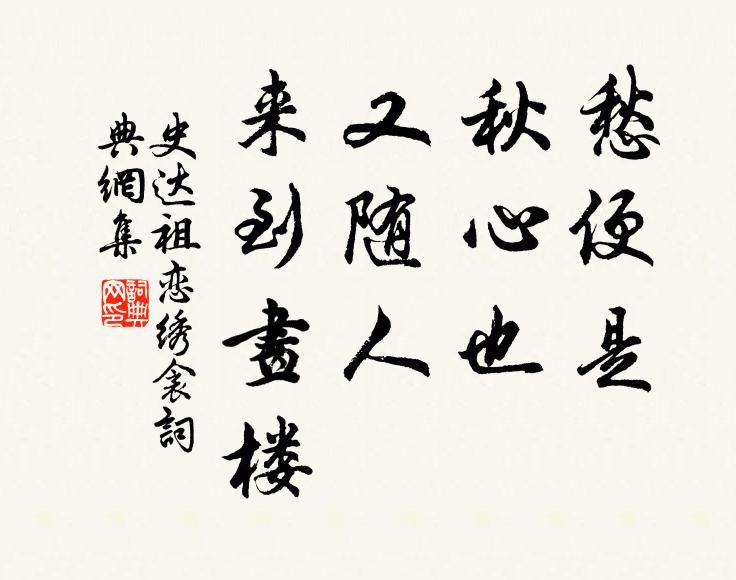 愁便是
秋心也
又随人
来到畫楼
史达祖恋绣衾詞
典網集
詞典
网印